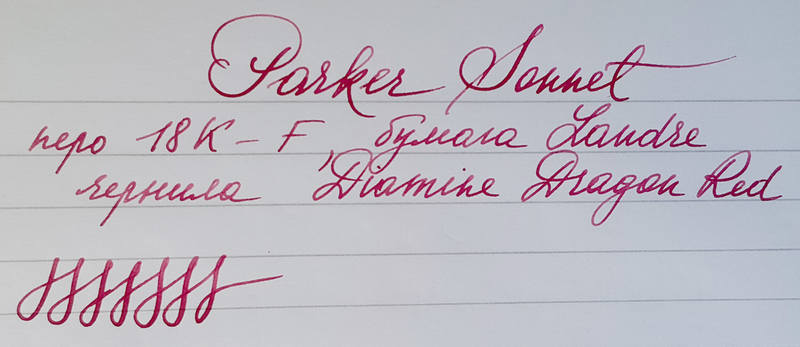 Parker Sonnet
перо 18K – F, бумага Landre
чернила Diamine Dragon Red